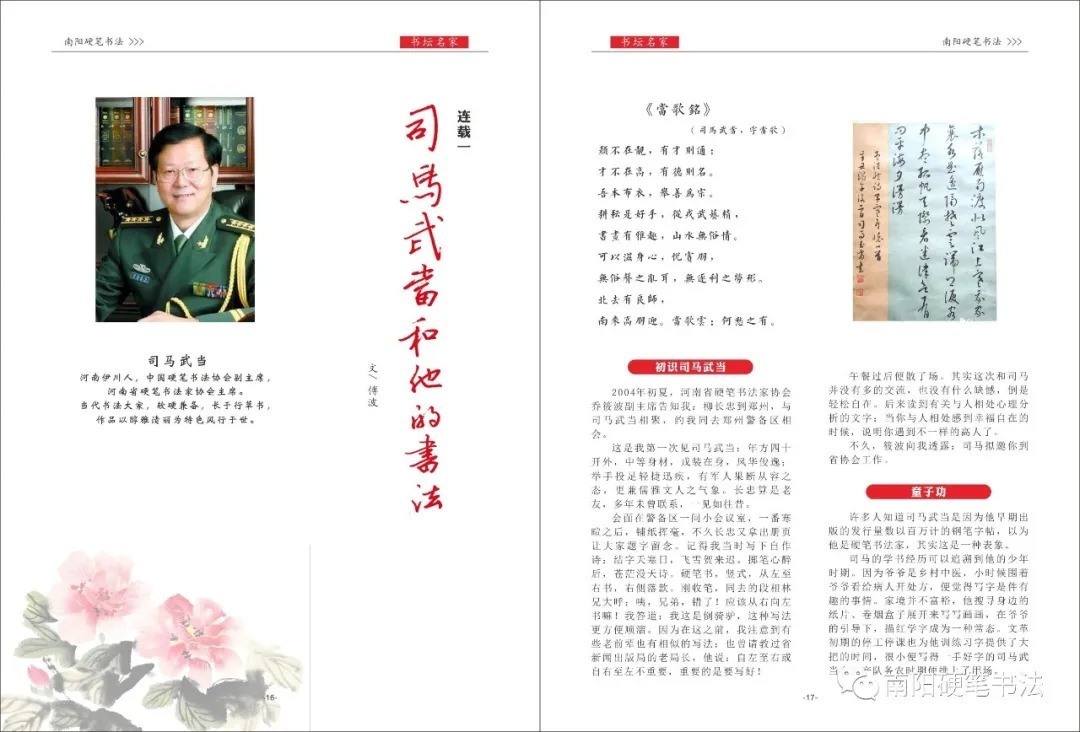 南阳硬笔书法 >>>
书坛名家
连载一
司馬武當和他的書法
文/傅波
司马武当
河南伊川人，中国硬笔书法协会副主席，
河南省硬笔书法家协会主席。
当代书法大家，软硬兼备，长于行草书，
作品以醇雅清丽为特色风行于世。
-16-
书坛名家
南阳硬笔书法 >>>
《當歌銘》
（司馬武當，字當歌）
顏不在靚，有才則通；
才不在高，有德則名。
吾本布衣，舉善爲宗。
耕耘是好手，從戎武藝精，
書畫有雅趣，山水無俗情。
可以滋身心，悅賓朋，
無俗聲之亂耳，無逐利之勞形。
北去有良師，
南來高朋迎。當歌雲：何愁之有。
初识司马武当
2004年初夏，河南省硬笔书法家协会
乔筱波副主席告知我：柳长忠到郑州，与
司马武当相聚，约我同去郑州警备区相
会。
这是我第一次见司马武当：年方四十
开外，中等身材，戎装在身，风华俊逸；
举手投足轻捷迅疾，有军人果断从容之
态，更兼儒雅文人之气象。长忠算是老
友，多年未曾联系，一见如往昔。
会面在警备区一间小会议室，一番寒
暄之后，铺纸挥毫，不久长忠又拿出册页
让大家题字留念。记得我当时写下自作
诗：结字天寒日，飞雪贺来迟。掷笔心醉
后，苍茫漫天诗。硬笔书，竖式，从左至
右书，右侧落款。刚收笔，同去的段相林
兄大呼：咦，兄弟，错了！应该从右向左
书嘛！我答道：我这是倒骑驴，这种写法
更方便顺溜。因为在这之前，我注意到有
些老前辈也有相似的写法；也曾请教过省
新闻出版局的老局长，他说：自左至右或
自右至左不重要，重要的是要写好！
午餐过后便散了场。其实这次和司马
并没有多的交流，也没有什么缺憾，倒是
轻松自在。后来读到有关与人相处心理分
析的文字：当你与人相处感到幸福自在的
时候，说明你遇到不一样的高人了。
不久，筱波向我透露：司马拟邀你到
省协会工作。
童子功
许多人知道司马武当是因为他早期出
版的发行量数以百万计的钢笔字帖，以为
他是硬笔书法家，其实这是一种表象。
司马的学书经历可以追溯到他的少年
时期。因为爷爷是乡村中医，小时候围着
爷爷看给病人开处方，便觉得写字是件有
趣的事情。家境并不富裕，他搜寻身边的
纸片、卷烟盒子展开来写写画画，在爷爷
的引导下，描红学字成为一种常态。文革
初期的停工停课也为他训练习字提供了大
把的时间，很小便写得一手好字的司马武
当
南阳硬笔书法
-17-